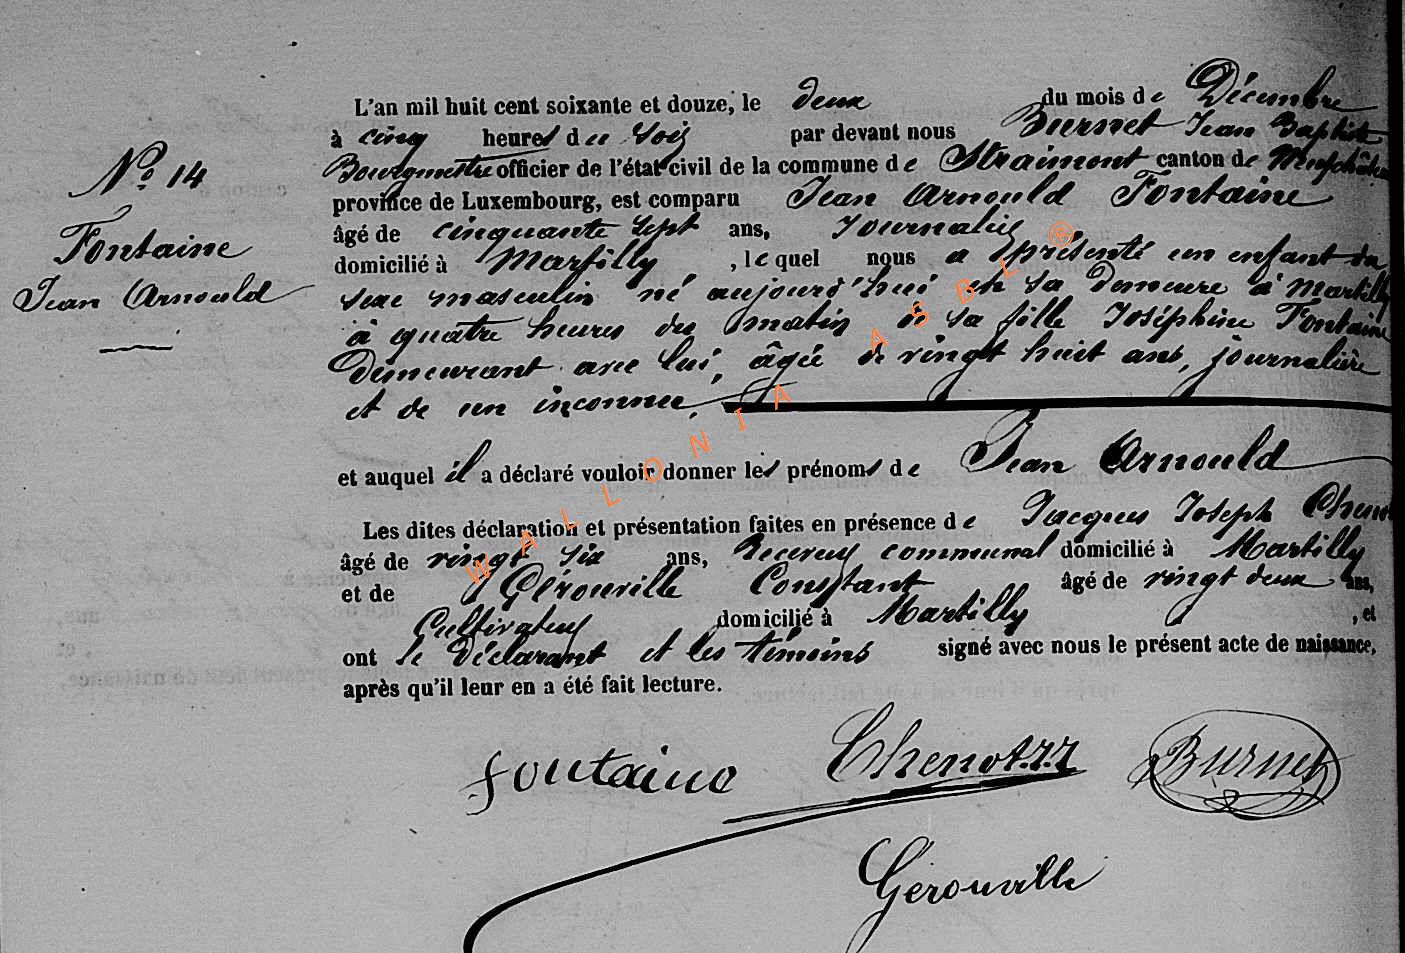 L'an mil huit cent soixante et douze, le deux du mois de Décembre
à cinq heures du soir par devant nous Burnet Jean Baptiste
Bourgmestre officier de l'état civil de la commune de Straimont canton de Neufchâteau
N° 14
province de Luxembourg, est comparu Jean Arnould Fontaine
âgé de cinquante sept ans, Journalier
Fontaine
domicilié à Martilly, lequel nous a présenté un enfant du
Jean Arnould
sexe masculin né aujourd'hui en sa demeure à Martilly
à quatre heures du matin de sa fille Joséphine Fontaine
demeurant avec lui, âgée de vingt huit ans, journalière
et de un inconnu.
et auquel il a déclaré vouloir donner les prénoms de Jean Arnould
Les dites déclaration et présentation faites en présence de Jacques Joseph Chenot
âgé de vingt six ans, Receveur communal domicilié à Martilly
et de Gérouville Constant âgé de vingt deux ans,
Cultivateur domicilié à Martilly, et
ont le déclarant et les témoins signé avec nous le présent acte de naissance,
après qu'il leur en a été fait lecture.
fontaine Chenot.J.J Burnet
Gérouville
WALLONIA ASBL ®